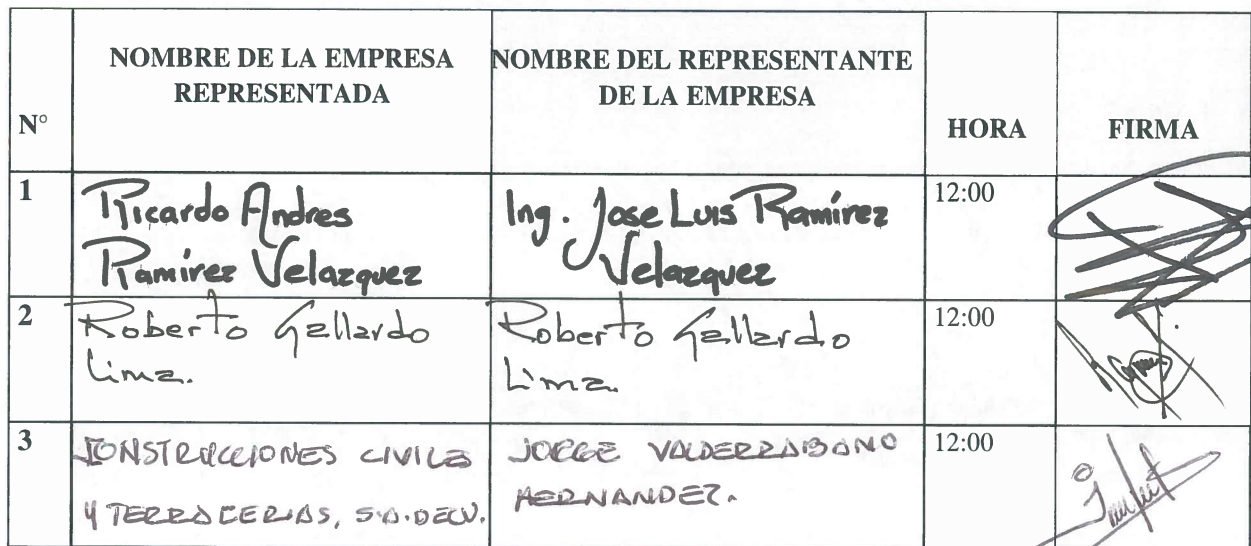 NOMBRE DE LA EMPRESA
REPRESENTADA
NOMBRE DEL REPRESENTANTE
DE LA EMPRESA
N°
HORA
FIRMA
1
Ricardo Andres
Ramírez Velazquez
Ing. Jose Luis Ramírez
Velazquez
12:00
2
Roberto Gallardo
Lima.
Roberto Gallardo
Lima.
12:00
3
CONSTRUCCIONES CIVILES
Y TERRACERIAS, S.A. DE C.V.
JORGE VALDERRABANO
HERNANDEZ.
12:00